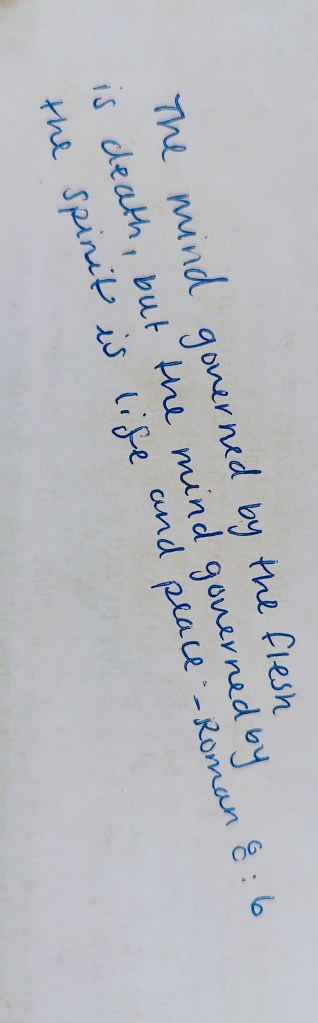 The mind governed by the flesh
is death, but the mind governed by
the spirit is life and peace. - Roman 8:6